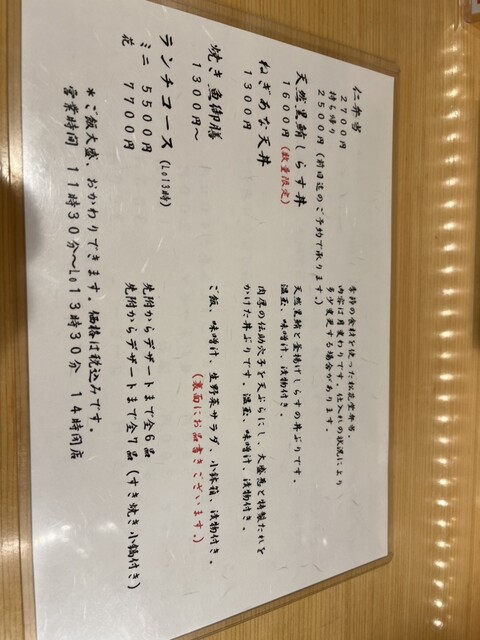 仁弁当
2700円
持ち帰り
2500円(前日迄のご予約で承ります。)
季節の食材を使った松花堂弁当
内容は月変わりです。仕入れの状況により
多少変更する場合があります。
天然黒鮪しらす丼
1600円(数量限定)
天然黒鮪と釜揚げしらすの丼ぶりです。
温玉、味噌汁、漬物付き。
ねぎあな天丼
1300円
肉厚の伝助穴子を天ぷらにし、大盛葱と特製たれを
かけた丼ぶりです。温玉、味噌汁、漬物付き。
焼き魚御膳
1300円〜
ご飯、味噌汁、生野菜サラダ、小鉢箱、漬物付き。
(裏面にお品書きございます。)
ランチコース(Lo13時)
ミニ 5500円
先附からデザートまで全6品
花 7700円
先附からデザートまで全7品(すき焼き小鍋付き)
*ご飯大盛、おかわりできます。価格は税込みです。
営業時間 11時30分〜Lo13時30分 14時閉店